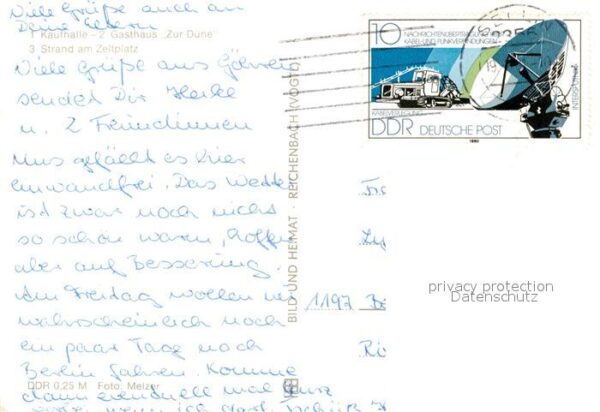 Viele Grüße auch an
Deine Eltern
1 Kaufhalle - 2 Gasthaus „Zur Düne"
3 Strand am Zeltplatz
Viele Grüße aus Göhren
sendet Dir Heike
u. 2 Freundinnen
Uns gefällt es hier
einwandfrei. Das Wetter
ist zwar noch nicht
so schön warm, hoffen
aber auf Besserung.
Am Freitag wollen wir
wahrscheinlich noch
ein paar Tage nach
Berlin fahren. Komme
dann eventuell mal kurz
DDR 0,25 M Foto: Melzer
BILD UND HEIMAT · REICHENBACH (VOGTL)
10
NACHRICHTENÜBERTRAGUNG
KABEL- UND FUNKVERBINDUNGEN
KABELVERLEGUNG
INTERSPUTNIK
DDR DEUTSCHE POST
1980
1197
privacy protection
Datenschutz